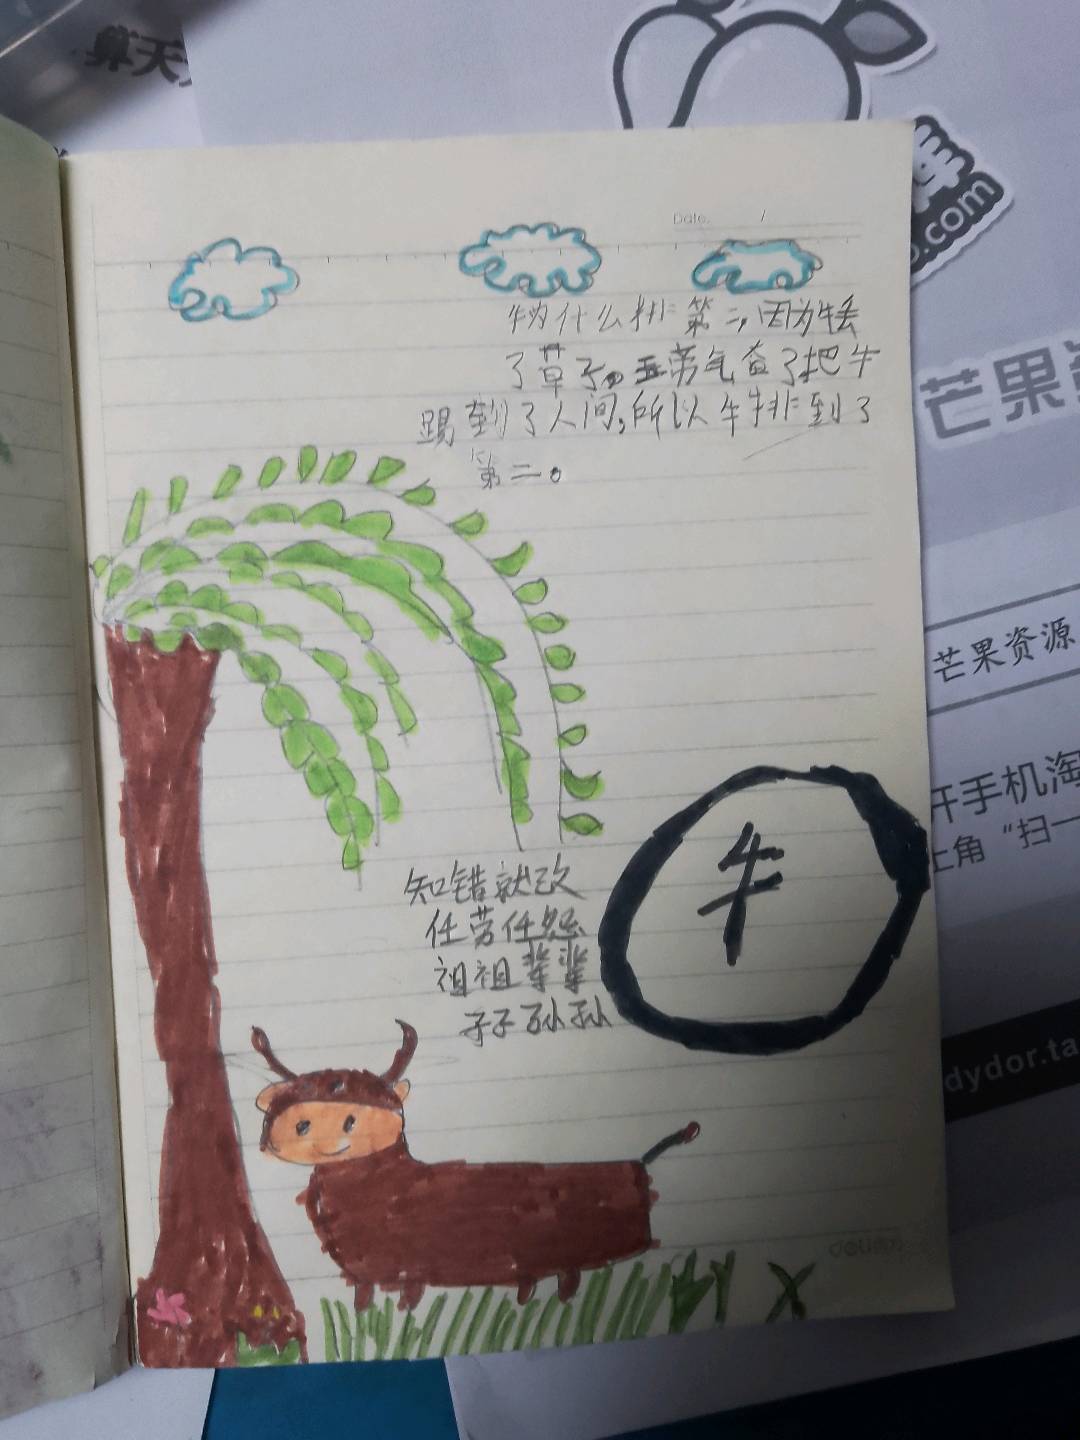 算天
.com
Date.
牛为什么排第二,因为牛丢
了草子。玉帝气查了把牛
踢到了人间,所以牛排到了
第二。
芒果
芒果资源
开手机淘
上角“扫一
牛
知错就改
任劳任怨
祖祖辈辈
子子孙孙
dydor.ta
deli得力